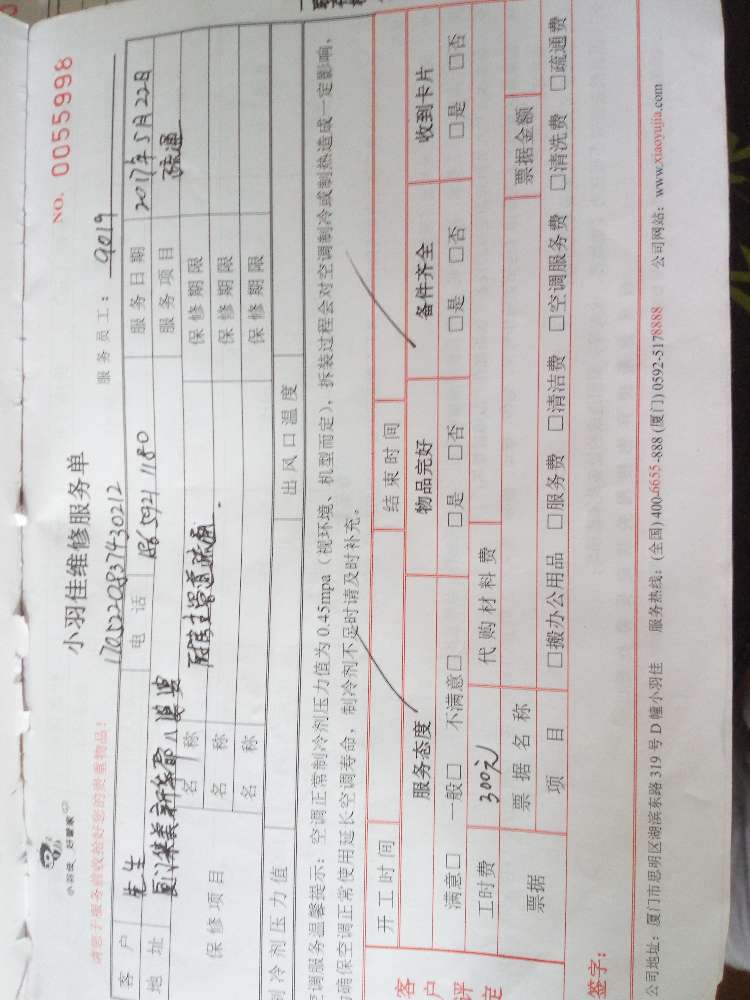 小羽佳 好管家
小羽佳维修服务单
NO. 0055998
请您于服务前收拾好您的贵重物品！
1705220837430212
服务员工： 9019
客户 先生 电话 18659211180 服务日期 2017年5月22日
地址 厦门集美 服务项目 疏通
保修项目 名称 厨房主管道疏通 保修期限
名称 保修期限
名称 保修期限
制冷剂压力值 出风口温度
空调服务温馨提示：空调正常制冷剂压力值为 0.45mpa（视环境、机型而定），拆装过程会对空调制冷或制热造成一定影响，
为确保空调正常使用延长空调寿命，制冷剂不足时请及时补充。
开工时间 结束时间
客户评定
服务态度 物品完好 备件齐全 收到卡片
满意□ 一般□ 不满意□ □是 □否 □是 □否 □是 □否
工时费 300元 代购材料费
票据 票据名称 票据金额
项目 □搬办公用品 □服务费 □清洁费 □空调服务费 □清洗费 □疏通费
签字：
公司地址：厦门市思明区湖滨东路 319 号 D 幢小羽佳 服务热线：(全国) 400-6655-888 (厦门) 0592-5178888 公司网站：www.xiaoyujia.com